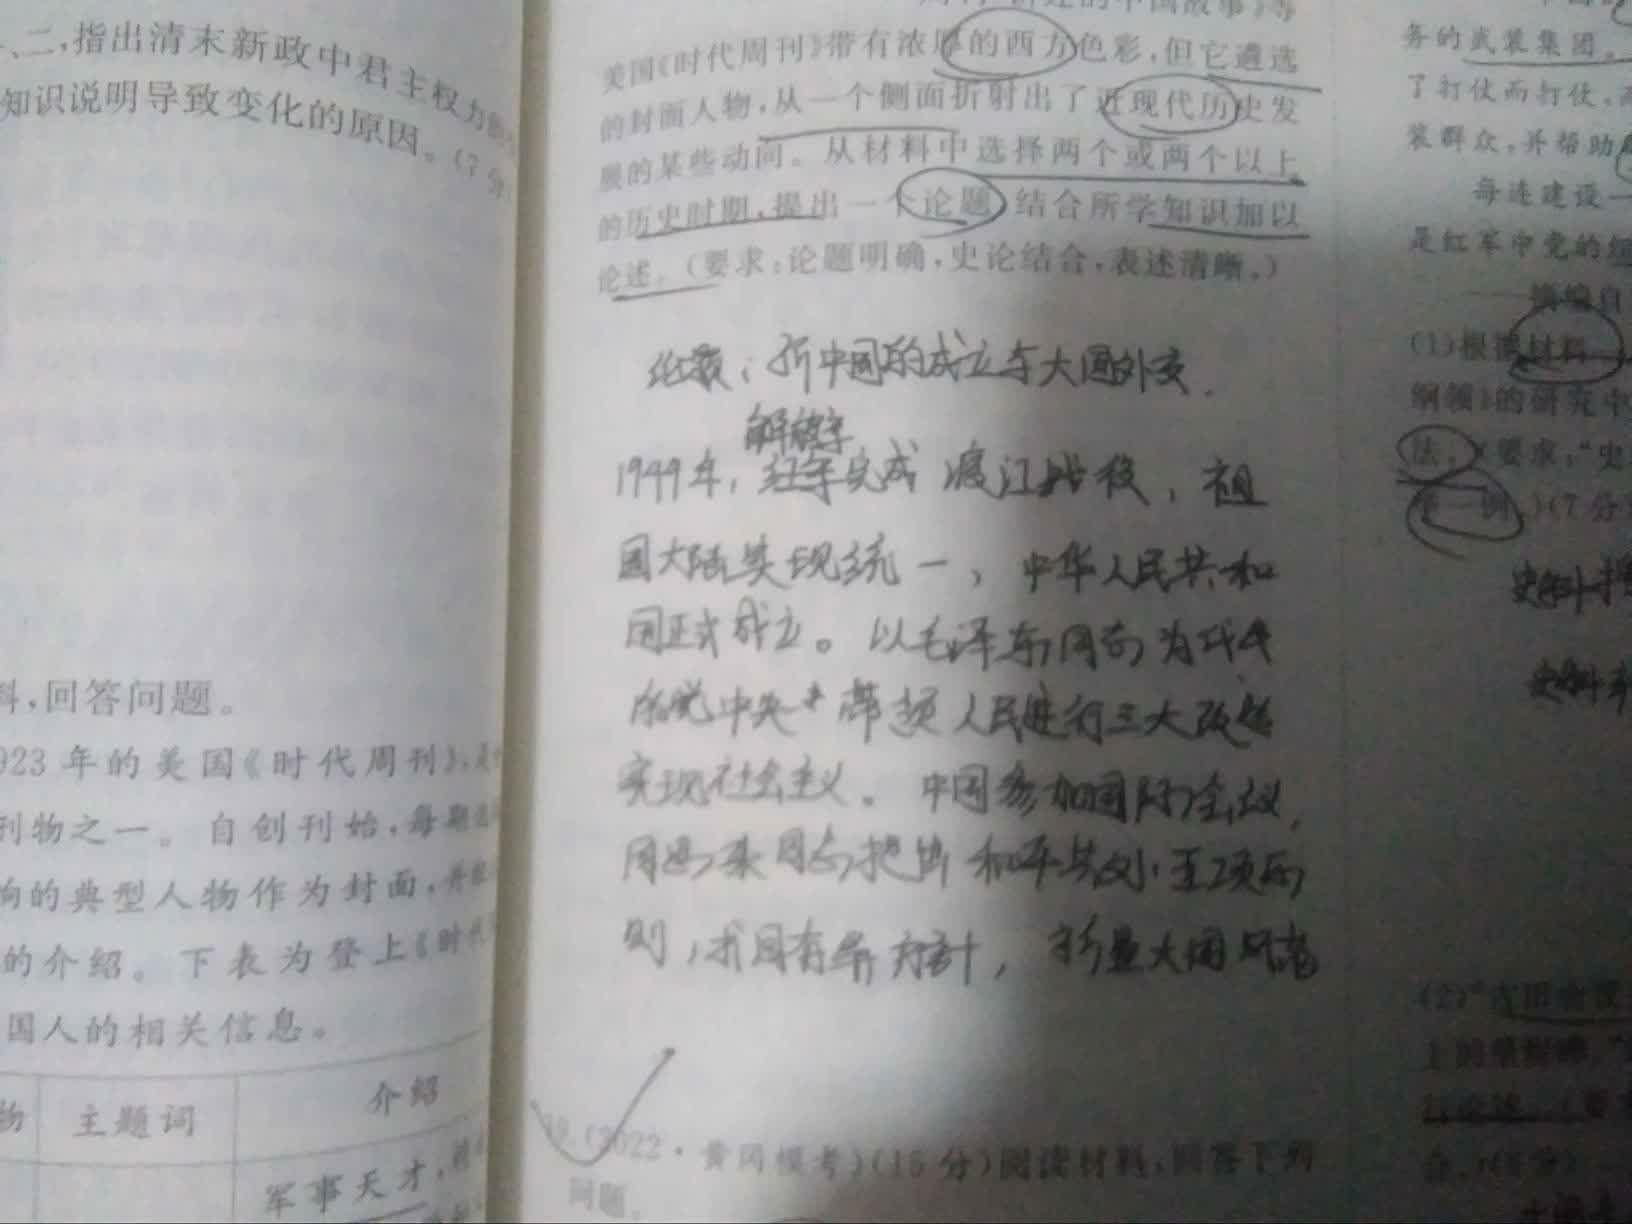 二,指出清末新政中君主权力
知识说明导致变化的原因。(7分)
料,回答问题。
923年的美国《时代周刊》,是
刊物之一。自创刊始,每期
响的典型人物作为封面,并
的介绍。下表为登上《时代
国人的相关信息。
物 主题词 介绍
军事天才,
美国《时代周刊》带有浓厚的西方色彩,但它遴选
的封面人物,从一个侧面折射出了近现代历史发
展的某些动向。从材料中选择两个或两个以上
的历史时期,提出一个论题,结合所学知识加以
论述。(要求:论题明确,史论结合,表述清晰。)
论题:新中国的成立与大国外交.
解放军
1949年,红军完成渡江战役,祖
国大陆实现统一,中华人民共和
国正式成立。以毛泽东同志为代表
的党中央 带领人民进行三大改造
实现社会主义。中国参加国际会议,
周恩来同志提出和平共处五项原
则,求同存异方针,彰显大国风范
19.(2022·黄冈模考)(15分)阅读材料,回答下列
问题。
务的武装集团。
了打仗而打仗,
装群众,并帮助
每连建设一
是红军中党的
摘编自
(1)根据材料
纲领》的研究中
法。(要求:“史
一例)(7分
史料
史料